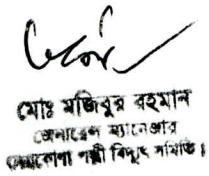 মোঃ মজিবুর রহমান
জেনারেল ম্যানেজার
নেত্রকোণা পল্লী বিদ্যুৎ সমিতি।